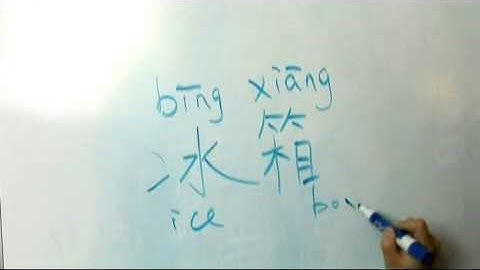 bīng xiāng
冰箱
ice bo